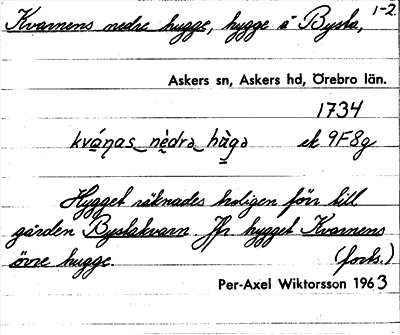 Kvarnens nedre hugge, hygge å Bysta, 1-2.
Askers sn, Askers hd, Örebro län.
1734
kvánas nèdra hùga ek 9F8g
Hygget räknades troligen förr till
gården Bystakvarn. Jfr hygget Kvarnens
övre hugge. (forts.)
Per-Axel Wiktorsson 1963